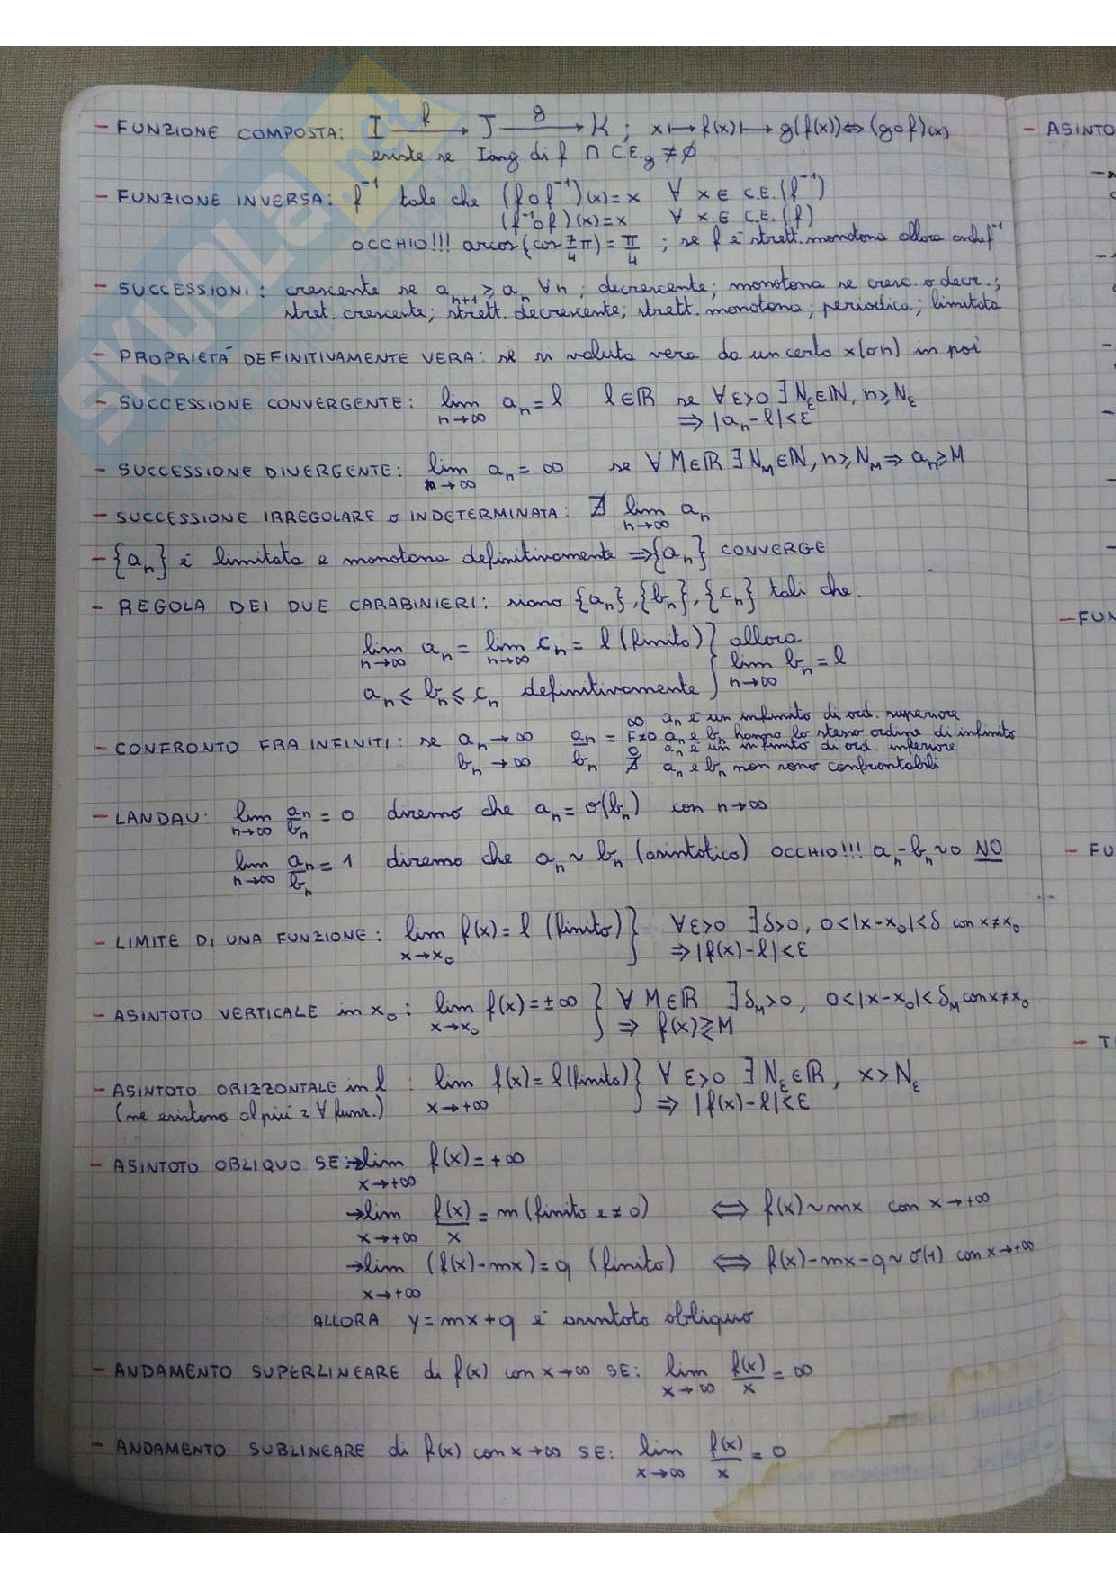 - FUNZIONE COMPOSTA: I —f→ J —g→ K ; x ↦ f(x) ↦ g(f(x)) ⇔ (g∘f)(x)
esiste se Img di f ∩ C.E.g ≠ ∅
- FUNZIONE INVERSA: f⁻¹ tale che (f∘f⁻¹)(x) = x ∀ x ∈ C.E.(f⁻¹)
(f⁻¹∘f)(x) = x ∀ x ∈ C.E.(f)
OCCHIO!!! arcos(cos 7/4 π) = π/4 ; se f è strett. monotona allora anche f⁻¹
- SUCCESSIONI: crescente se aₙ₊₁ ≥ aₙ ∀n; decrescente; monotona se cresc. o decr.;
stret. crescente; strett. decrescente; strett. monotona; periodica; limitata
- PROPRIETÀ DEFINITIVAMENTE VERA: se si valuta vera da un certo x(o n) in poi
- SUCCESSIONE CONVERGENTE: lim aₙ = l l∈ℝ se ∀ε>0 ∃Nε∈ℕ, n≥Nε
n→∞ ⇒ |aₙ-l|<ε
- SUCCESSIONE DIVERGENTE: lim aₙ = ∞ se ∀M∈ℝ ∃N_M∈ℕ, n≥N_M ⇒ aₙ≥M
n→∞
- SUCCESSIONE IRREGOLARE o INDETERMINATA: ∄ lim aₙ
n→∞
- {aₙ} è limitata e monotona definitivamente ⇒ {aₙ} CONVERGE
- REGOLA DEI DUE CARABINIERI: siano {aₙ}, {bₙ}, {cₙ} tali che.
lim aₙ = lim cₙ = l (finito) } allora
n→∞ n→∞ lim bₙ = l
aₙ ≤ bₙ ≤ cₙ definitivamente } n→∞
∞ aₙ è un infinito di ord. superiore
- CONFRONTO FRA INFINITI: se aₙ → ∞ aₙ/bₙ = F≠0 aₙ e bₙ hanno lo stesso ordine di infinito
0 aₙ è un infinito di ord. inferiore
bₙ → ∞ ∄ aₙ e bₙ non sono confrontabili
- LANDAU: lim aₙ/bₙ = 0 diremo che aₙ = o(bₙ) con n→∞
n→∞
lim aₙ/bₙ = 1 diremo che aₙ ~ bₙ (asintotico) OCCHIO!!! aₙ-bₙ~0 NO
n→∞
- LIMITE DI UNA FUNZIONE: lim f(x) = l (finito) } ∀ε>0 ∃δ>0, 0<|x-x₀|<δ con x≠x₀
x→x₀ ⇒ |f(x)-l|<ε
- ASINTOTO VERTICALE in x₀: lim f(x) = ±∞ } ∀ M∈ℝ ∃δ_M>0, 0<|x-x₀|<δ_M con x≠x₀
x→x₀ ⇒ f(x)≷M
- ASINTOTO ORIZZONTALE in l : lim f(x) = l (finito) } ∀ ε>0 ∃ Nε∈ℝ, x>Nε
(ne esistono al più 2 ∀ funz.) x→+∞ ⇒ |f(x)-l|<ε
- ASINTOTO OBLIQUO SE: →lim f(x) = +∞
x→+∞
→lim f(x)/x = m (finito e ≠ 0) ⇔ f(x)~mx con x→+∞
x→+∞
→lim (f(x)-mx) = q (finito) ⇔ f(x)-mx-q ~ o(1) con x→+∞
x→+∞
ALLORA y=mx+q è asintoto obliquo
- ANDAMENTO SUPERLINEARE di f(x) con x→∞ SE: lim f(x)/x = ∞
x→∞
- ANDAMENTO SUBLINEARE di f(x) con x→∞ SE: lim f(x)/x = 0
x→∞
- ASINTO
- FUN
- FU
- T
SKUOLA.net